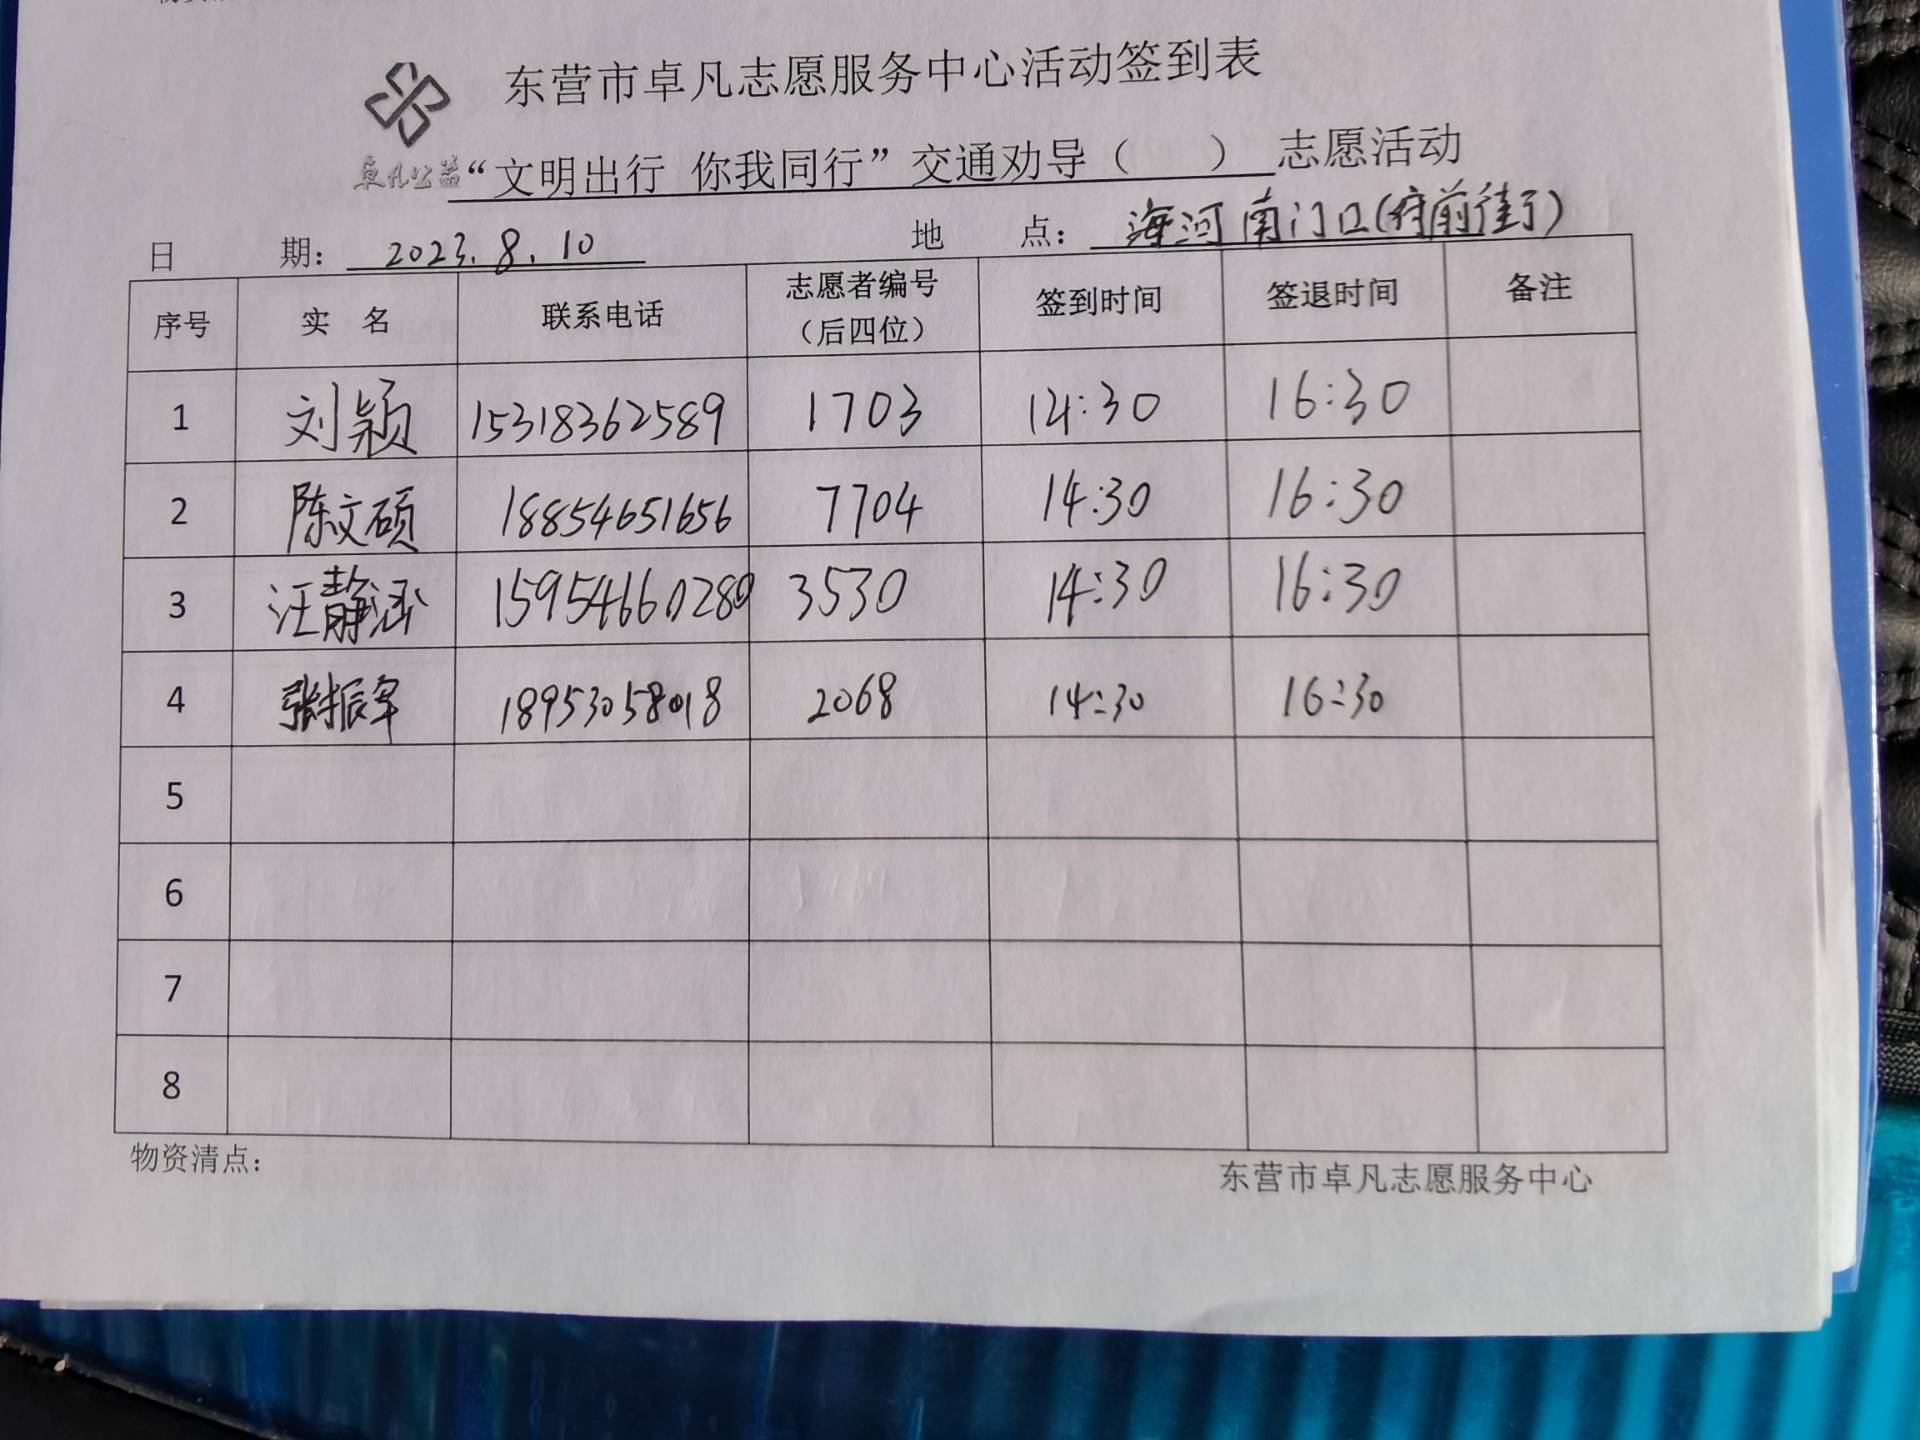 东营市卓凡志愿服务中心活动签到表
卓凡公益
“文明出行 你我同行”交通劝导（ ）志愿活动
日 期： 2023.8.10 地 点： 海河南门口(府前街)
序号 实 名 联系电话 志愿者编号（后四位） 签到时间 签退时间 备注
1 刘颖 15318362589 1703 14:30 16:30
2 陈文硕 18854651656 7704 14:30 16:30
3 汪静涵 15954660280 3530 14:30 16:30
4 张振军 18953058018 2068 14:30 16:30
5
6
7
8
物资清点： 东营市卓凡志愿服务中心